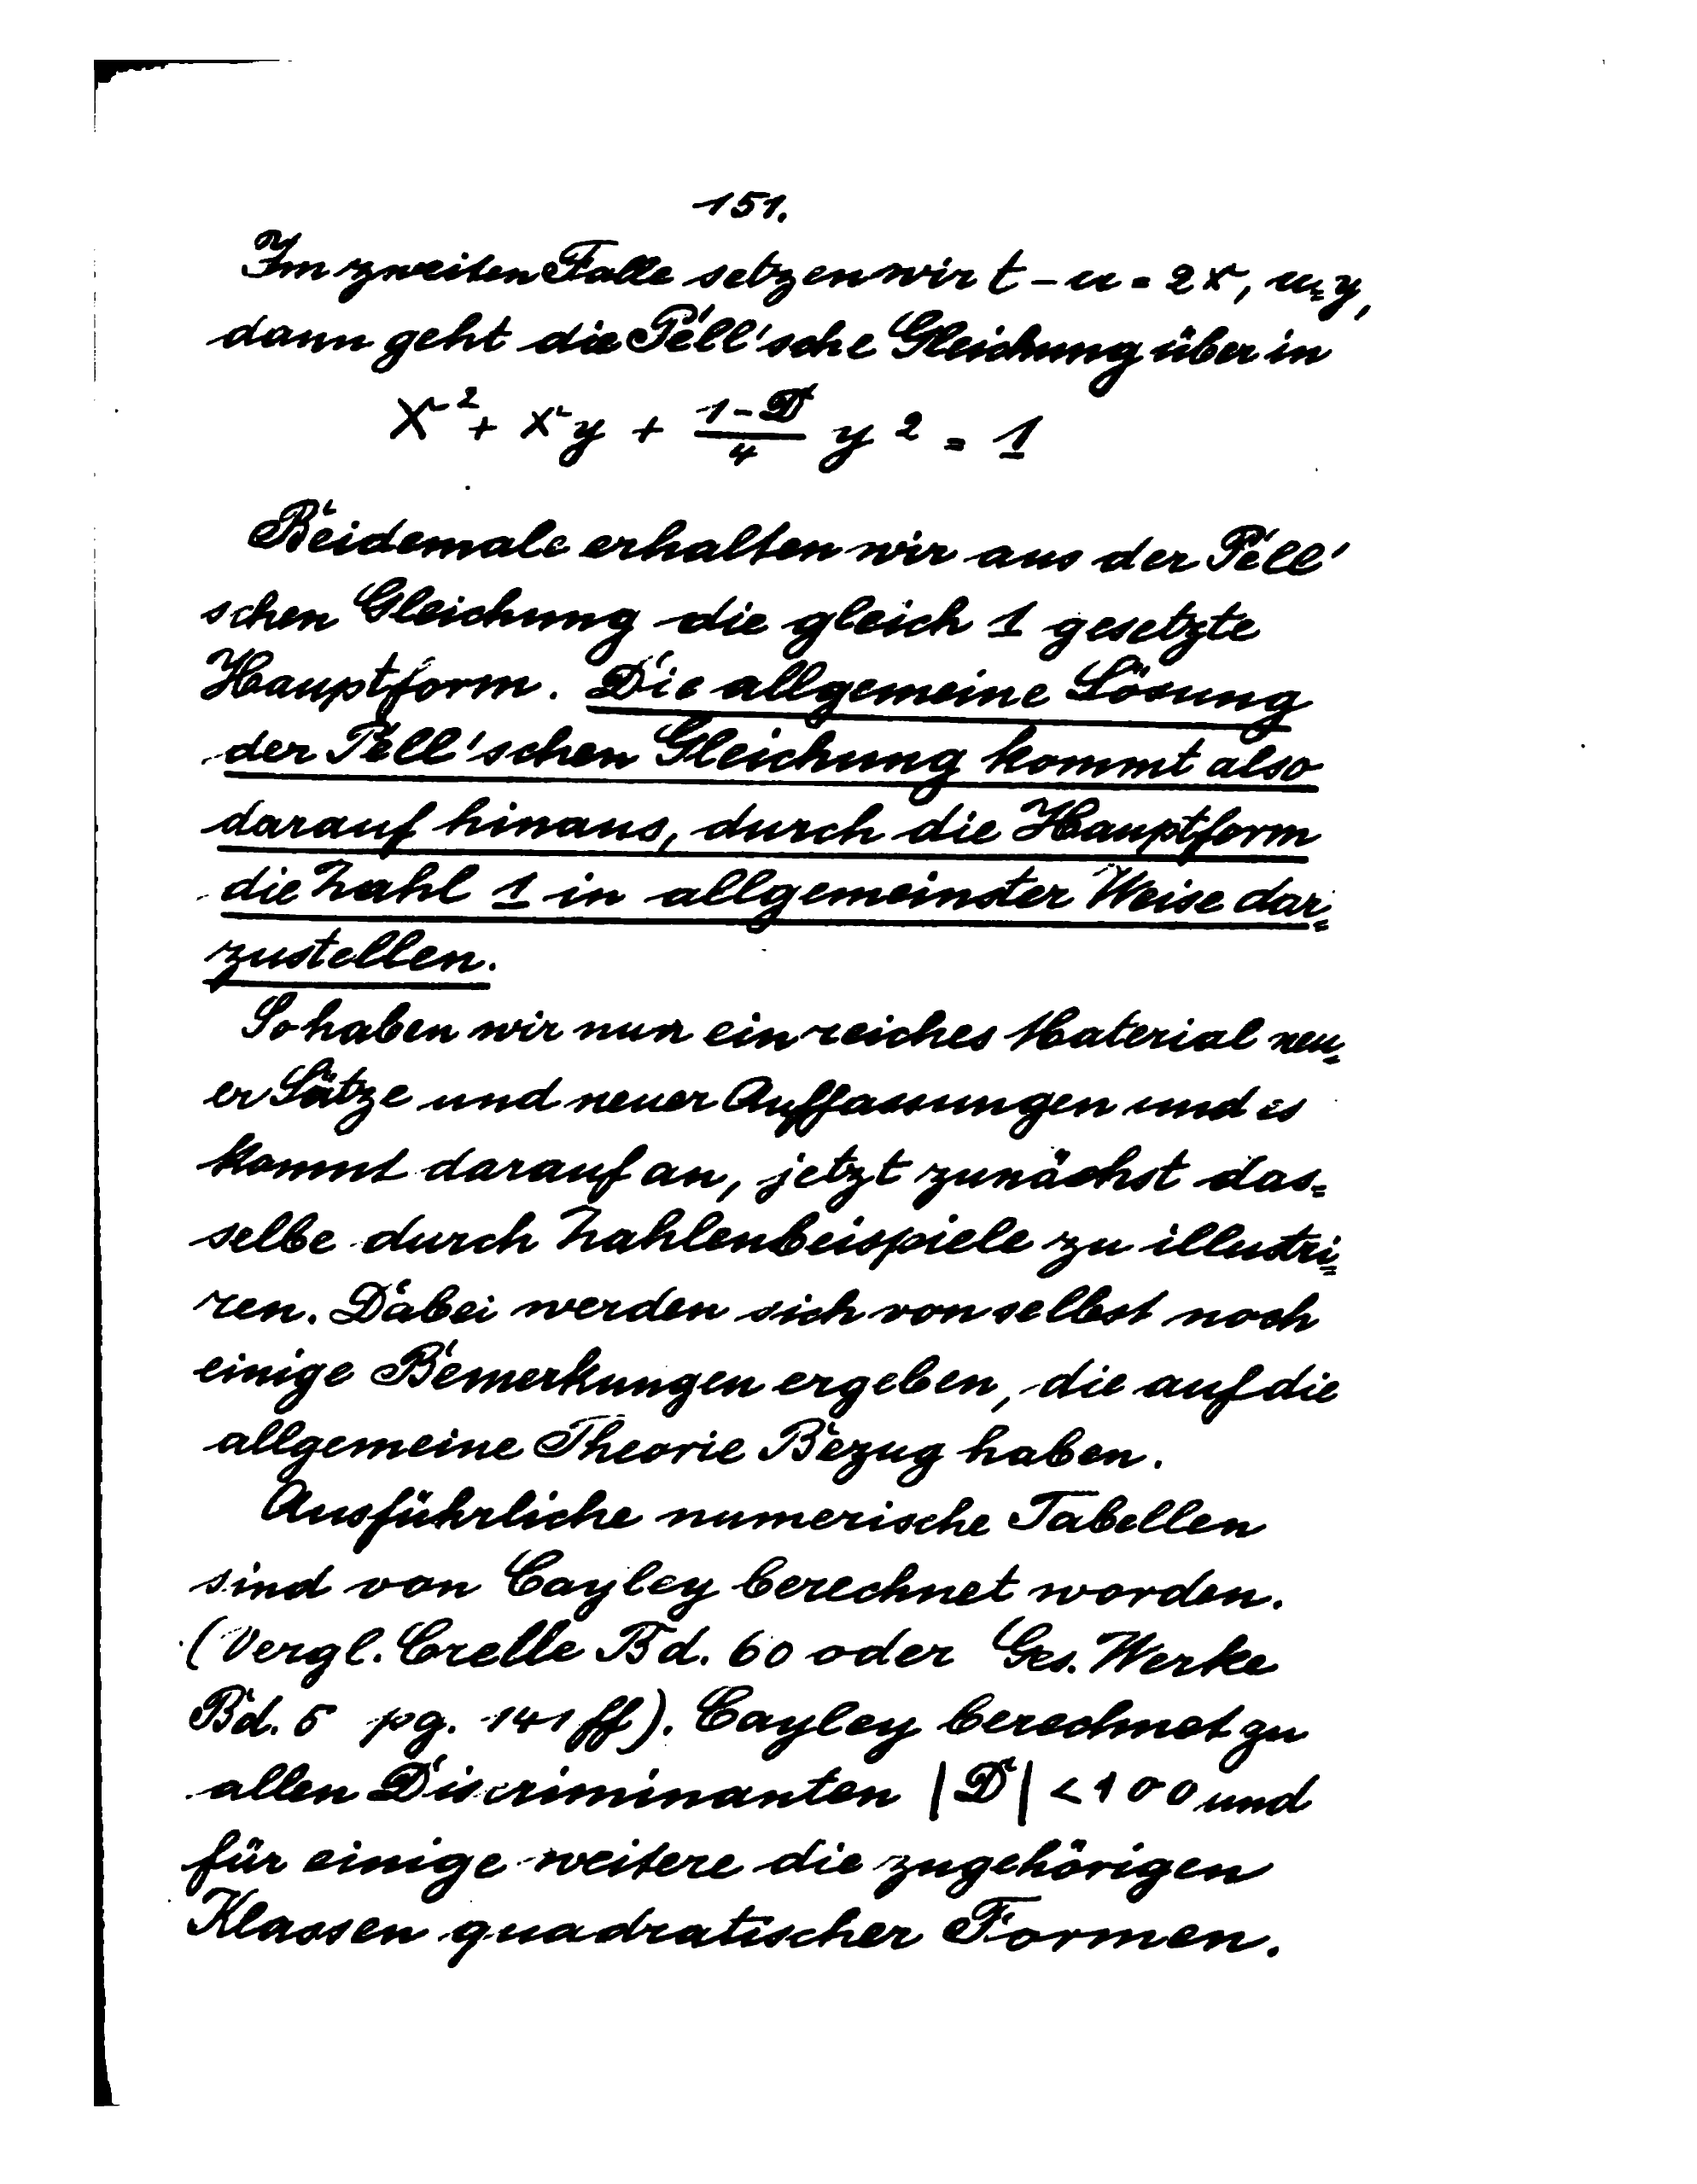 151.
Im zweiten Falle setzen wir t - u = 2x, u=y,
dann geht die Pell'sche Gleichung über in
x² + xy + (1-D)/4 y² = 1
Beidemale erhalten wir aus der Pell'
schen Gleichung die gleich 1 gesetzte
Hauptform. Die allgemeine Lösung
der Pell'schen Gleichung kommt also
darauf hinaus, durch die Hauptform
die Zahl 1 in allgemeinster Weise dar=
zustellen.
So haben wir nun ein reiches Material neu=
er Sätze und neuer Auffassungen und es
kommt darauf an, jetzt zunächst das=
selbe durch Zahlenbeispiele zu illustri=
ren. Dabei werden sich von selbst noch
einige Bemerkungen ergeben, die auf die
allgemeine Theorie Bezug haben.
Ausführliche numerische Tabellen
sind von Cayley berechnet worden.
(Vergl. Crelle Bd. 60 oder Ges. Werke
Bd. 5 pg. 141 ff). Cayley berechnet zu
allen Discriminanten |D| < 100 und
für einige weitere die zugehörigen
Klassen quadratischer Formen.